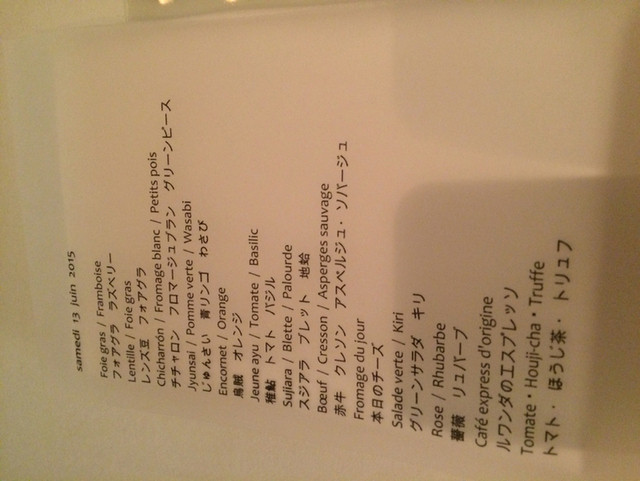 samedi 13 juin 2015
Foie gras / Framboise
フォアグラ ラズベリー
Lentille / Foie gras
レンズ豆 フォアグラ
Chicharrón / Fromage blanc / Petits pois
チチャロン フロマージュブラン グリーンピース
Jyunsai / Pomme verte / Wasabi
じゅんさい 青リンゴ わさび
Encornet / Orange
烏賊 オレンジ
Jeune ayu / Tomate / Basilic
稚鮎 トマト バジル
Sujiara / Blette / Palourde
スジアラ ブレット 地蛤
Bœuf / Cresson / Asperges sauvage
赤牛 クレソン アスペルジュ・ソバージュ
Fromage du jour
本日のチーズ
Salade verte / Kiri
グリーンサラダ キリ
Rose / Rhubarbe
薔薇 リュバーブ
Café express d'origine
ルワンダのエスプレッソ
Tomate・Houji-cha・Truffe
トマト・ほうじ茶・トリュフ